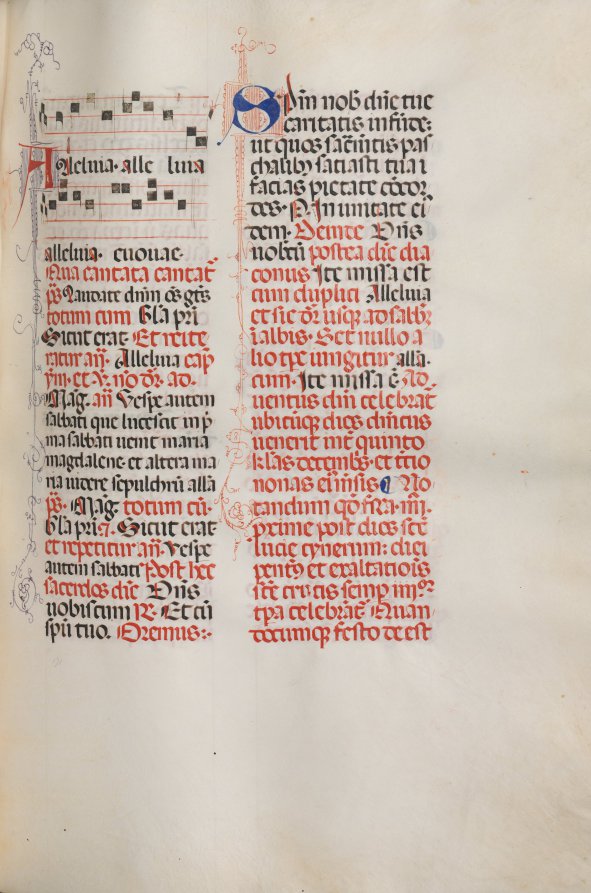 Alleluia· alle luia
alleluia· euouae·
Qua cantata cantat̄
p̄s Laudate dn̄m oēs gēs
totum cum Gl̄a pr̄i
Sicut erat· Et reite
ratur an̄· Alleluia
no dr̄· ad
Maḡ· an̄ Vesꝑe autem
sabbati que lucescit in p̄
ma sabbati uenit maria
magdalene· et altera ma
ria uidere sepulchrū alla
p̄s· Maḡ· totum cū·
Gl̄a pr̄i· Sicut erat
et repetitur an̄· Vesꝑe
autem sabbati Post hec
sacerdos dic̄ Dn̄s
uobiscum R̄· Et cū
sp̄u tuo· Oremus:·
Spm̄ nob̄ dn̄e tue
caritatis infūde:
ut quos sac̄mētis pas
chalib᷒ satiasti tua
facias pietate cōcor
des· P̲· In unitate ei
dem· Deinde Dn̄s
uobcū postea dic̄ dia
conus Ite missa est
cum duplici Alleluia
et sic dr̄ usq̨ ad sabb̄
ī albis· Set nullo a
lio tꝑe iungitur alla·
cum· Ite missa ē Ad
uentus dn̄i celebrat̄
ubicūq̨ dies dn̄icus
uenerit int̄ quinto
kl̄as decemb̄s· et t̄tio
nonas eiusdem No
tandum qd̄ fr̄a· iiij·
prime post dies sc̄e
lucie cynerum:
pentec̄ et exaltatiōis
sc̄e crucis semp iiij᷒r
tp̄ra celebrat̄ Quan
documq̨ festo de est